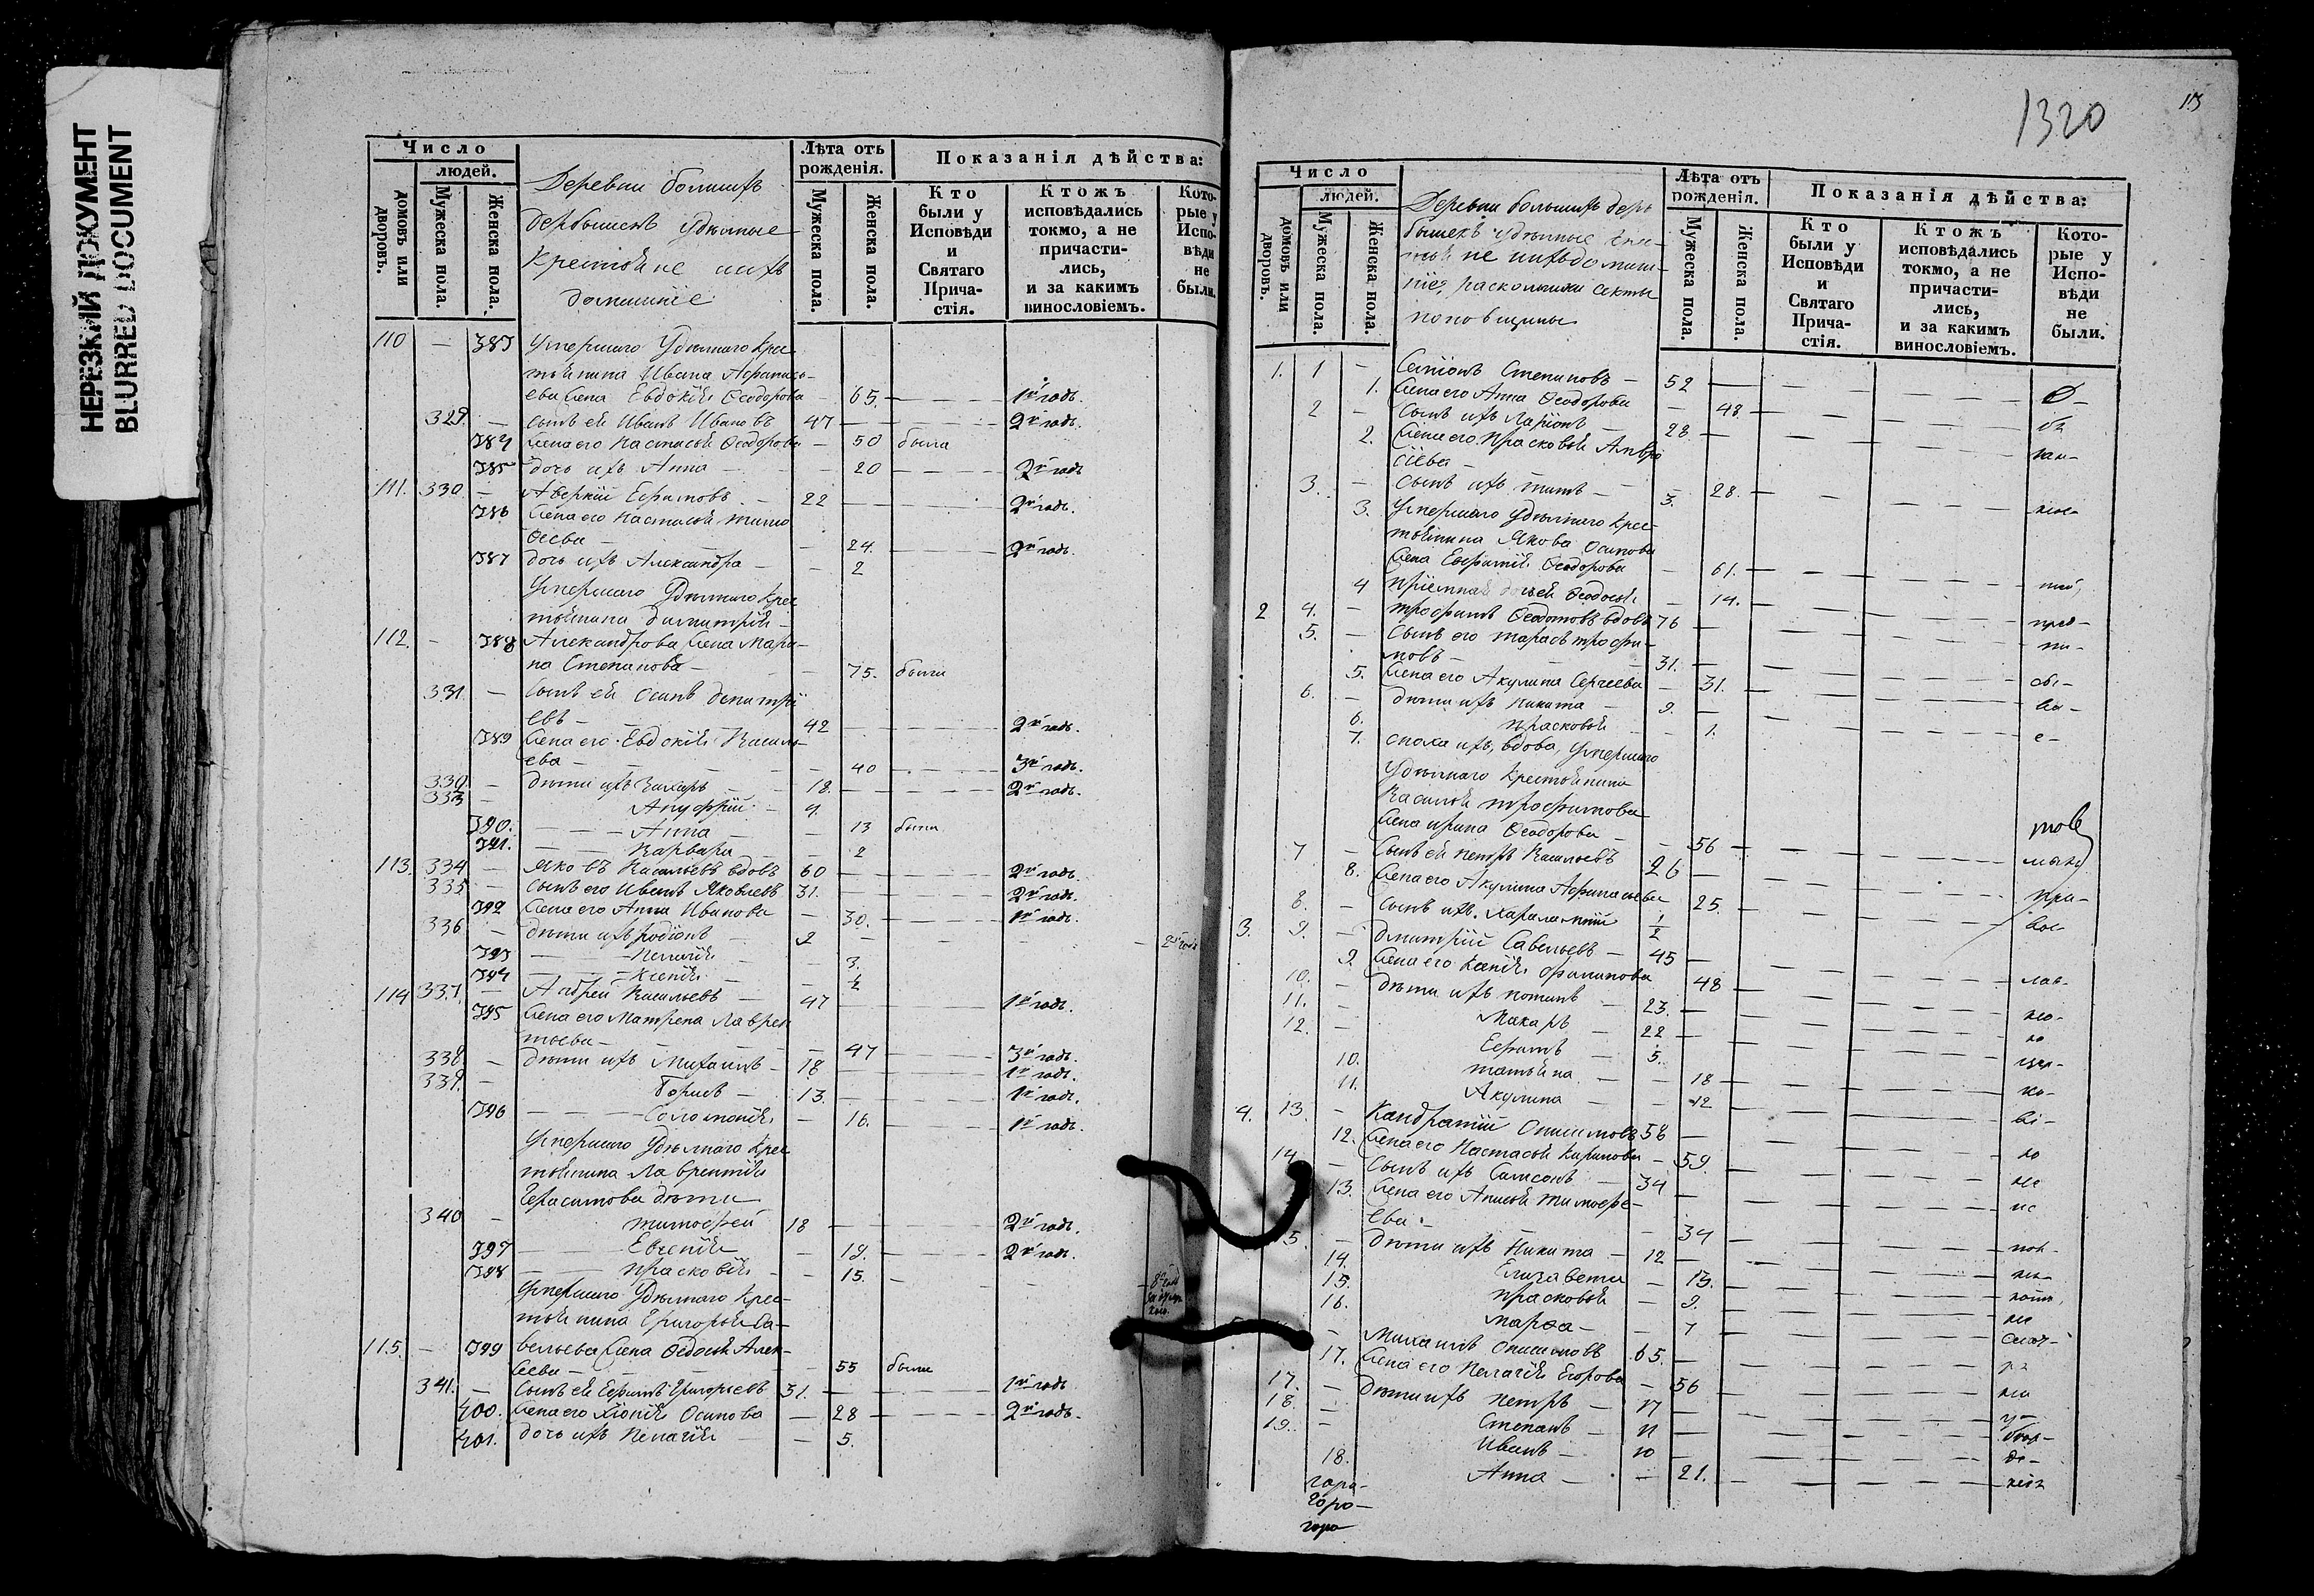 НЕРЕЗКИЙ ДОКУМЕНТ
BLURRED DOCUMENT
Число
людей.
домовъ или дворовъ.
Мужеска пола.
Женска пола.
Деревни большихъ
дербышекъ удѣльные
крестьяне ихъ
домашніе
Лѣта отъ рожденія.
Мужеска пола.
Женска пола.
Показанія дѣйства:
Кто были у Исповѣди и Святаго Причастія.
Ктожъ исповѣдались токмо, а не причастились, и за какимъ винословіемъ.
Которые у Исповѣди не были.
110 — 383 Умершаго Удѣльнаго Крес
тьянина Ивана Афанась-
ева жена Евдокія Ѳеодорова 65. 1й годъ.
329. — сынъ ея Иванъ Ивановъ 47 2й годъ.
384 жена его Настасья Ѳеодорова — 50 была
385 дочь ихъ Анна — 20 2й годъ
111. 330 — Аверкій Ефимовъ — 22 2й годъ.
386 жена его Настасья Тимо
ѳеева — 24. 2й годъ.
387 дочь ихъ Александра — 2
Умершаго Удѣльнаго Крес
тьянина Димитрія
112. — 388 Александрова жена Мари-
на Степанова — 75. была
331. — сынъ ея Осипъ Димитрі
евъ — 42 2й годъ.
389 жена его Евдокія Василь-
ева — 40 3й годъ.
332. — дѣти ихъ Захаръ — 18. 2й годъ.
333 — Ануфрій — 9.
390. Анна — 13 была
391. Варвара — 2
113. 334 — Яковъ Васильевъ вдовъ 60 2й годъ.
335 — сынъ его Иванъ Яковлевъ 31. 2й годъ.
392 жена его Анна Иванова — 30. 1й годъ.
336 — дѣти ихъ Родіонъ — 9 2й годъ
393 Пелагія — 3.
394 Ксенія —
114 337. — Андрей Васильевъ — 47 1й годъ.
395 жена его Матрена Лаврен
тьева — 47 3й годъ.
338. — дѣти ихъ Михаилъ — 18 1й годъ.
339. — Борисъ — 13. 1й годъ.
396 Соломонія — 16. 1й годъ.
Умершаго Удѣльнаго Крес
тьянина Лаврентія
Герасимова дѣти
340 — Тимофей 18 2й годъ.
397 Евгенія — 19. 2й годъ.
398 Прасковія — 15.
Умершаго Удѣльнаго Крес-
тьянина Григорья Са-
115. — 399 вельева жена Ѳедосья Алек-
сеева — 55 была
341. — сынъ ея Ефимъ Григорьевъ 31. 1й годъ
400. жена его Хіонія Осипова — 28 2й годъ.
401. дочь ихъ Пелагія — 5.
1320
Число
людей.
домовъ или дворовъ.
Мужеска пола.
Женска пола.
Деревни большихъ дер
бышекъ удѣльные крес-
тьяне ихъ домаш-
ніе, раскольники секты
поповщины
Лѣта отъ рожденія.
Мужеска пола.
Женска пола.
Показанія дѣйства:
Кто были у Исповѣди и Святаго Причастія.
Ктожъ исповѣдались токмо, а не причастились, и за какимъ винословіемъ.
Которые у Исповѣди не были.
1. 1 — Степановъ — 52
1. жена его Анна Ѳеодорова — 48
2 — сынъ ихъ Ларіонъ — 28
2. жена его Прасковья Амвро
сіева — 28.
3. — сынъ ихъ Титъ — 3.
3. Умершаго удѣльнаго крес-
тьянина Якова Осипова
жена Евфимія Ѳеодорова — 61.
4 пріемная дочь ея Ѳеодосья — 14.
2 4. — Трофимъ Ѳедотовъ вдовъ 76
5. — сынъ его Тарасъ Трофи-
мовъ — 31.
5. жена его Акулина Сергеева — 31.
6. — дѣти ихъ Никита — 9.
6. Прасковья — 1.
7. сноха ихъ, вдова, Умершаго
Удѣльнаго Крестьянина
Василья Трофимова
жена Ирина Ѳеодорова — 56
7 — сынъ ея Петръ Васильевъ 26
8. жена его Акулина Афанасьева 25.
8. — сынъ ихъ Харалампій 1/2
3. 9. — Дмитрій Савельевъ — 45
9. жена его Ксенія Филипова 48
10. — дѣти ихъ Потапъ — 23.
11. — Макаръ — 22
12. — Ефимъ — 5.
10. Татьяна — 18
11. Акулина — 12
4. 13. — Кандратій Онисимовъ 58
12. жена его Настасья Кирилова — 59.
14 — сынъ ихъ Самсонъ — 34
13. жена его Анисья Тимофе-
ева — 34
15. — дѣти ихъ Никита — 12
14. Елизавета — 13.
15. Прасковья — 9.
16. Марѳа — 7
— Михаилъ Онисимовъ 65.
17. жена его Пелагія Егорова — 56
17. — дѣти ихъ Петръ — 17
18. — Степанъ — 11
19. — Иванъ — 10
18. Анна — 21.